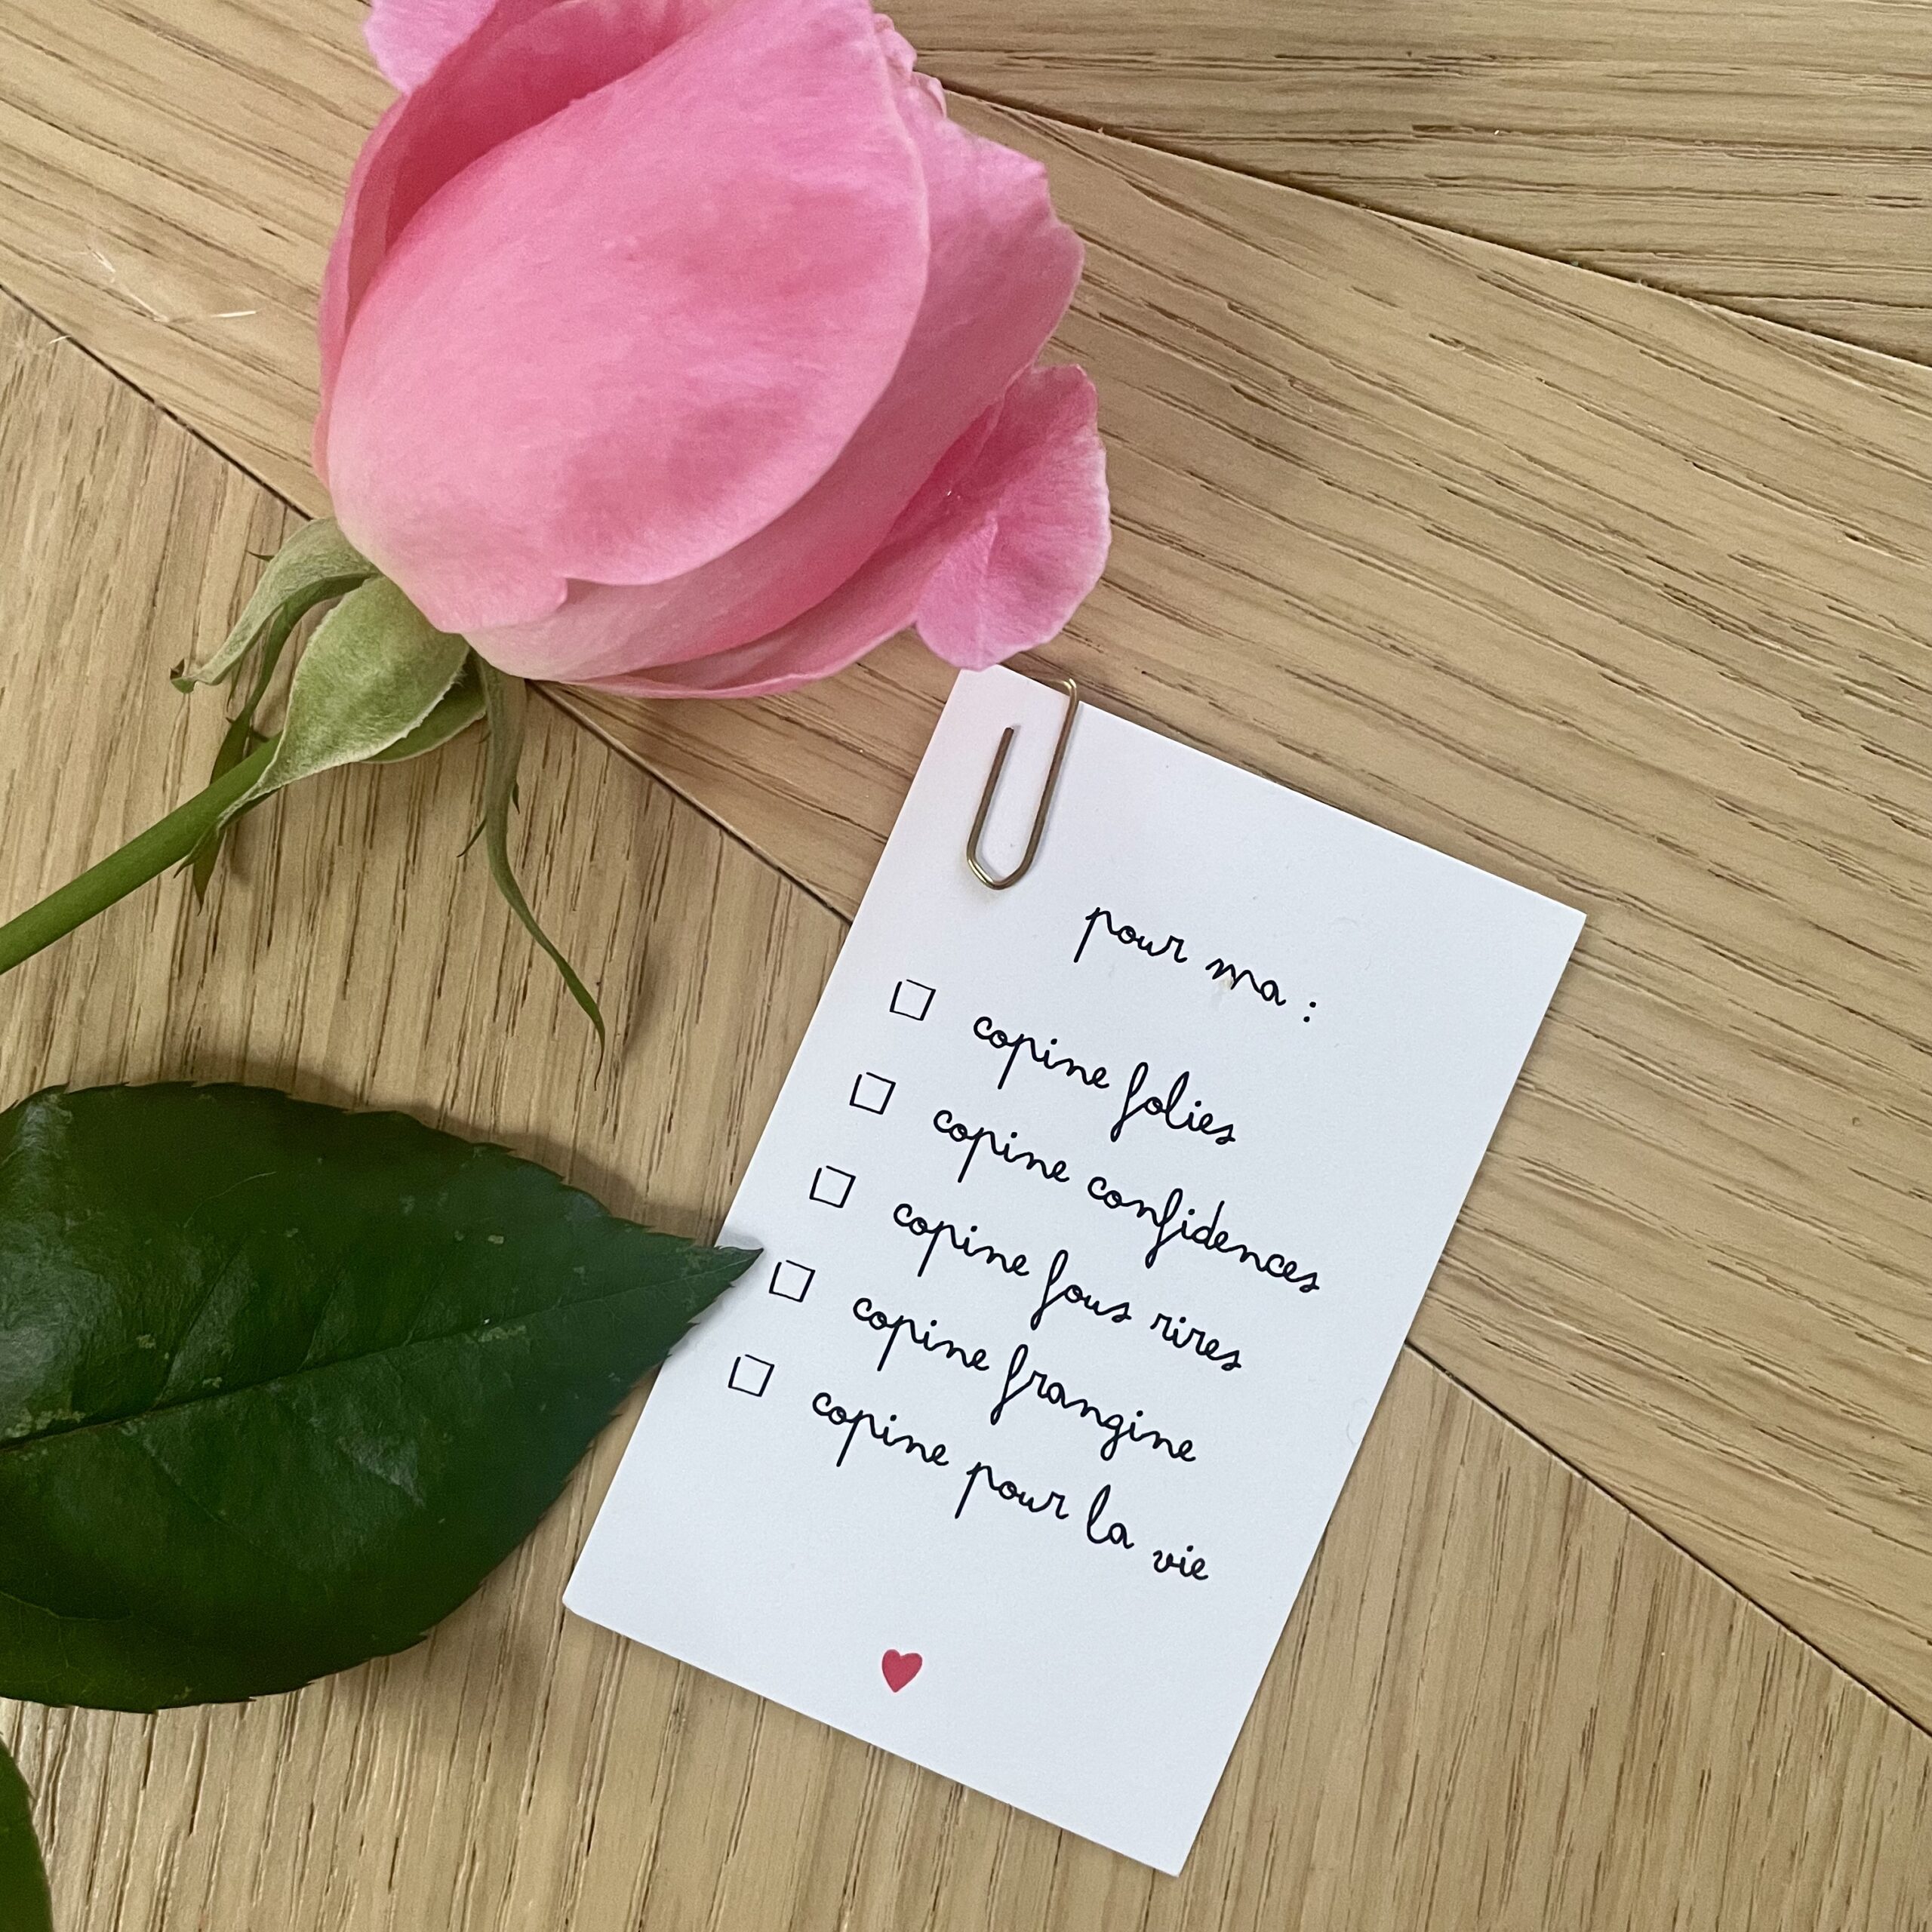 pour ma :
copine folies
copine confidences
copine fous rires
copine frangine
copine pour la vie